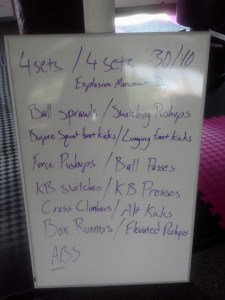 4 sets / 4 sets 30/10
Explosion Movement
Ball sprawls / Switching Pushups
Squat front kicks / Lunging front kicks
Force Pushups / Ball Passes
KB switches / KB Presses
Cross Climbers / Alt Kicks
Box Runners / Elevated Pushups
ABS